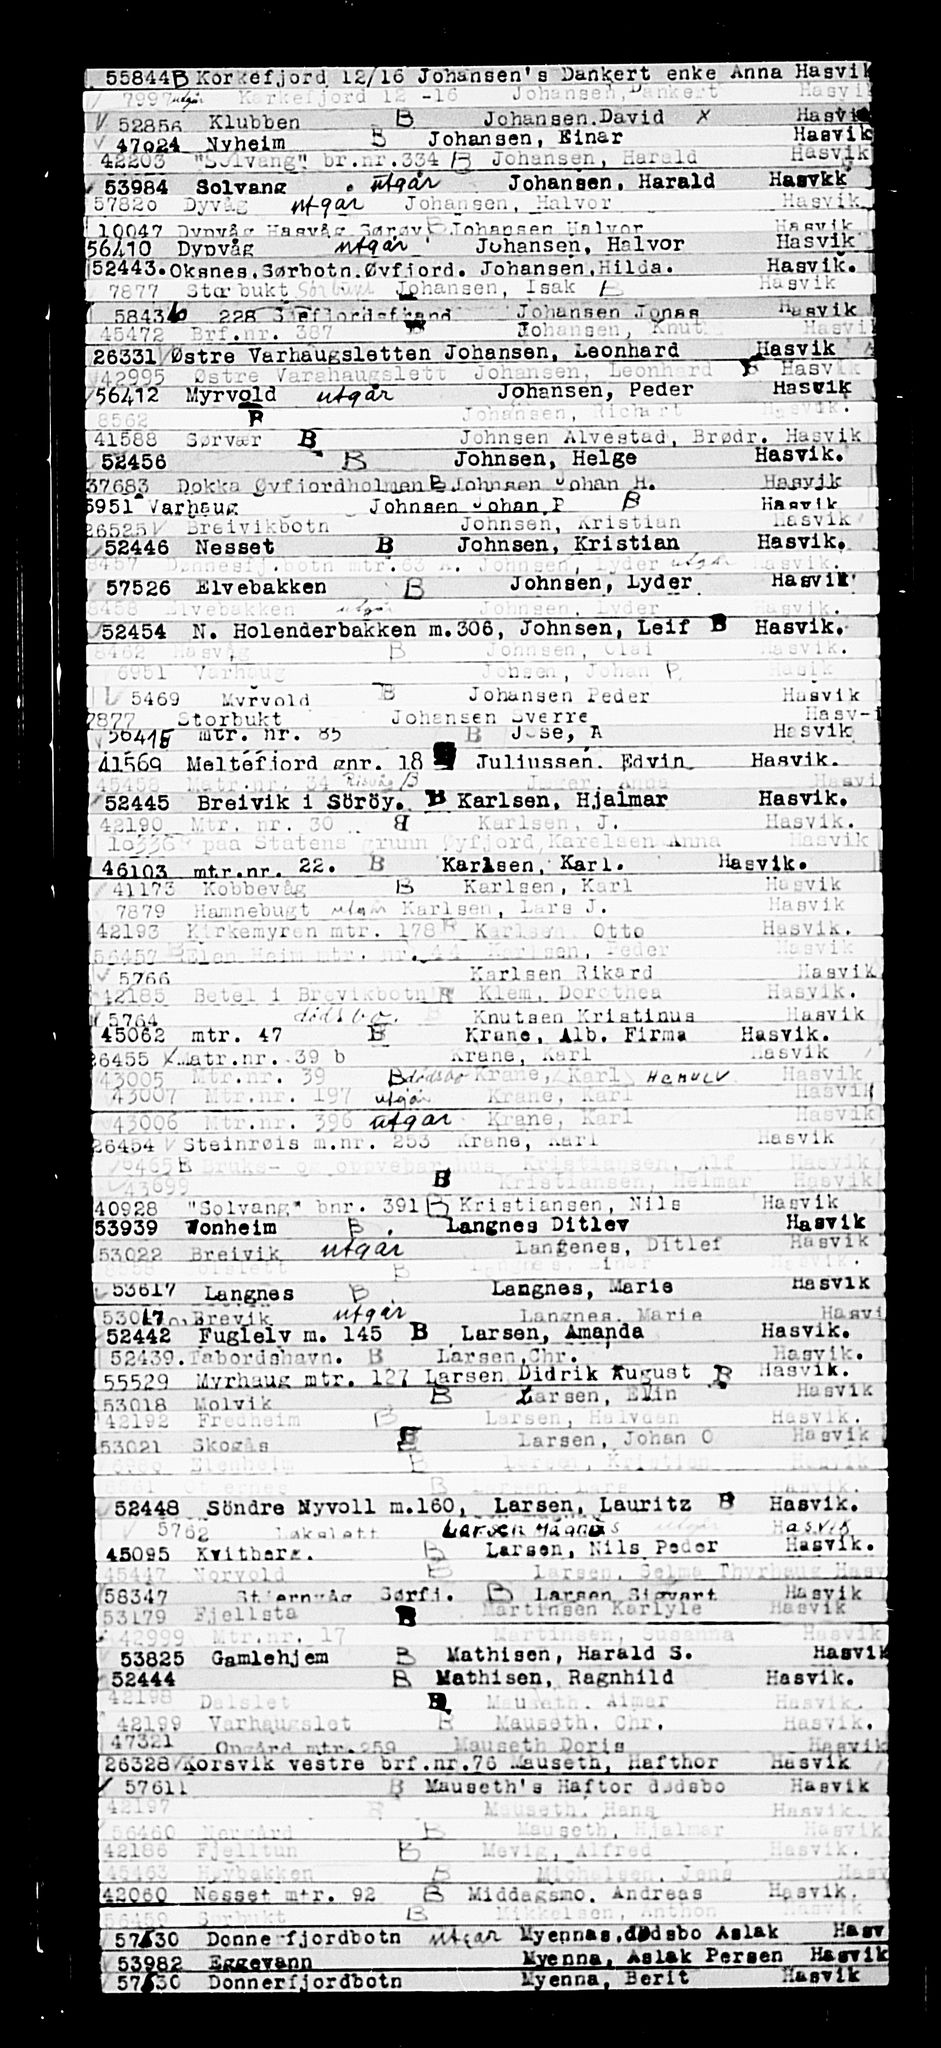 55844 B Korkefjord 12/16 Johansen's Dankert enke Anna Hasvik
7997 utgår Korkefjord 12 -16 Johansen, Dankert Hasvik
V 52856 Klubben B Johansen.David x Hasvik
47024 Nyheim B Johansen, Einar Hasvik
42203 "Solvang" br.nr.334 B Johansen, Harald Hasvik
53984 Solvang . utgår Johansen, Harald Hasvkk
57820 Dyvåg utgår Johansen, Halvor Hasvik
10047 Dypvåg Hasvåg Sørøy B Johansen Halvor Hasvik
56410 Dypvåg utgår Johansen, Halvor Hasvik
52443. Oksnes.Sørbotn.Øvfjord. Johansen,Hilda. Hasvik.
7877 Storbukt Johansen, Isak B Hasvik
58436 228 Johansen Jonas Hasvik
45472 Brf.nr. 387 Johansen, Knut Hasvik
26331 Østre Varhaugsletten Johansen, Leonhard Hasvik
42995 Østre Varahaugslett Johansen, Leonhard B Hasvik
56412 Myrvold utgår Johansen, Peder Hasvik
8562 B Johansen, Richart Hasvik.
41588 Sørvær B Johnsen Alvestad, Brødr. Hasvik
52456 B Johnsen, Helge Hasvik.
37683 Dokka Øvfjordholmen B Johnsen Johan H. Hasvik
6951 Varhaug Johnsen Johan P B Hasvik
26525 V Breivikbotn Johnsen, Kristian Hasvik
52446 Nesset B Johnsen, Kristian Hasvik.
8457 Dønnesfj.botn mtr.63 Johnsen, Lyder utgår Hasvik.
57526 Elvebakken B Johnsen, Lyder Hasvik
8458 Elvebakken utgår Johnsen, Lyder Hasvik.
52454 N. Holenderbakken m.306, Johnsen, Leif B Hasvik.
8462 Hasvåg B Johnsen, Olai Hasvik.
6951 Varhaug Jonsen, Johan P. Hasik
5469 Myrvold B Johansen Peder Hasvik
7877 Storbukt Johansen Sverre Hasv-i
56415 mtr. nr. 85 B Jøse, A Hasvik
41569 Meltefjord gnr. 18 Juliussen. Edvin Hasvik.
45458 Matr.nr. 34 B Jæger, Anna Hasvi
52445 Breivik i Söröy. B Karlsen, Hjalmar Hasvik.
42190 Mtr. nr. 30 B Karlsen, J. Hasvik.
10336 paa Statens grunn Øyfjord, Karelsen Anna Hasvik
46103 mtr.nr. 22. B Karlsen, Karl. Hasvik.
41173 Kobbevåg B Karlsen, Karl Hasvik
7879 Hamnebugt utgår Karlsen, Lars J. Hasvik
42193 Kirkemyren mtr. 178 B Karlsen, Otto Hasvik.
56457 B Elon Heim mtr. nr. 44 Karlsen, Peder Hasvik
5766 Karlsen Rikard Hasvik
42185 Betel i Brevikbotn B Klem, Dorothea Hasvik.
5764 dødsbo. B Knutsen Kristinus Hasvik
45062 mtr. 47 B Krane, Alb. Firma Hasvik.
26455 Matr.nr. 39 b Krane, Karl Hasvik
43005 Mtr.nr. 39 B dødsbo Krane, Karl Hasvik
43007 Mtr.nr. 197 utgår Krane, Karl Hasvik
43006 Mtr.nr. 396 utgår Krane, Karl Hasvik
26454 V Steinrøis m.nr. 253 Krane, Karl Hasvik
B Bruks- og Kristiansen, Alf Hasvik
43699 B Kristiansen, Helmar Hasvik
40928 "Solvang" bnr. 391 B Kristiansen, Nils Hasvik
53939 Vonheim B . Langnes Ditlev Hasvik
53022 Breivik utgår Langenes, Ditlef Hasvik
B Langnes, Einar Hasvik.
53617 Langnes B Langnes, Marie Hasvik
53017 Brevik utgår Langnes, Marie Hasvi
52442 Fuglelv m. 145 B Larsen, Amanda Hasvik.
52439. Tabordshavn. B Larsen,Chr. Hasvik.
55529 Myrhaug mtr. 127 Larsen Didrik August B Hasvik.
53018 Molvik B Larsen, Elin Hasvik
42192 Fredheim B Larsen, Halvdan Hasvik.
53021 Skogås B Larsen, Johan O Hasvik
Elenheim B Larsen, Kristian Hasvik
B Larsen, Lars Hasvik.
52448 Söndre Nyvoll m.160, Larsen, Lauritz B Hasvik.
5762 Løkslett Larsen Magnus utgår Hasvik
45095 Kvitberg. B Larsen, Nils Peder Hasvik.
45447 Norvold B Larsen, Selma Thyrhaug Hasv
58347 Stjernvåg Sørfj. B Larsen Sigvart Hasvik
53179 Fjellsta B Martinsen Karlyle Hasvik
42999 Mtr.nr. 17 Martinsen, Susanna Hasvik
53825 Gamlehjem B Mathisen, Harald S. Hasvik
52444 B Mathisen, Ragnhild Hasvik.
42198 Dalslet B Mauseth. Aimar Hasvik.
42199 Varhaugslet B Mauseth. Chr. Hasvik.
47321 Opgård mtr.259 Mauseth Doris Hasvik
26328 V Korsvik vestre brf.nr.76 Mauseth, Hafthor Hasvik
57611 B Mauseth's Haftor dødsbo Hasvik
42197 B Mauseth. Hans Hasvik.
56460 Norgård B Mauseth, Hjalmar Hasvik
42186 Fjelltun B Mevig, Alfred Hasvik.
45463 Høybakken B Michelsen, Jens Hasv
42060 Nesset mtr. 92 B Middagsmo. Andreas Hasvik.
56459 Sørbukt B Mikkelsen, Anthon Hasvik
57530 Donnerfjordbotn utgår Myennas,dødsbo Aslak Hasv
53982 Eggevann Myenna, Aslak Persen Hasvik
57530 Donnerfjordbotn Myenna, Berit Hasvik